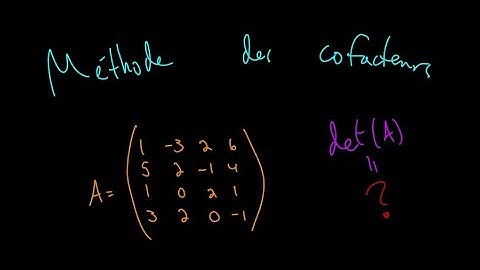 Méthode des cofacteurs
A = ( 1 -3 2 6
5 2 -1 4
1 0 2 1
3 2 0 -1 )
det(A)
=
?